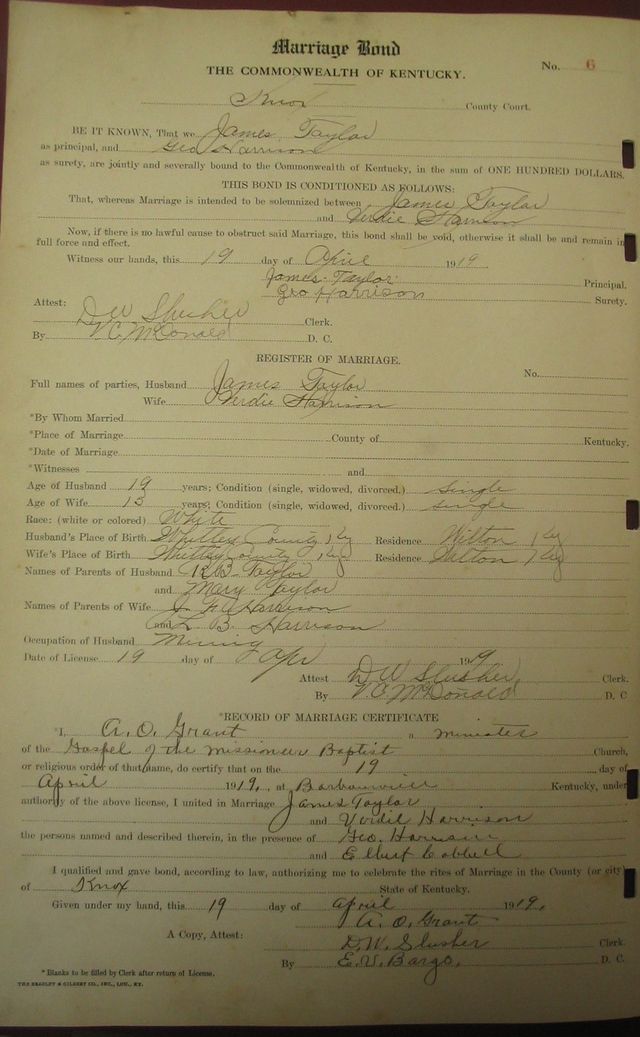 Marriage Bond
No. 6
THE COMMONWEALTH OF KENTUCKY.
Knox County Court.
BE IT KNOWN, That we James Taylor
as principal, and Geo Harrison
as surety, are jointly and severally bound to the Commonwealth of Kentucky, in the sum of ONE HUNDRED DOLLARS.
THIS BOND IS CONDITIONED AS FOLLOWS:
That, whereas Marriage is intended to be solemnized between James Taylor
and Verdie Harrison
Now, if there is no lawful cause to obstruct said Marriage, this bond shall be void, otherwise it shall be and remain in
full force and effect.
Witness our hands, this 19 day of April 1919
James Taylor Principal.
Geo Harrison Surety.
Attest:
D W Slusher Clerk.
By V. C. McDonald D. C.
REGISTER OF MARRIAGE.
No.
Full names of parties, Husband James Taylor
Wife Verdie Harrison
*By Whom Married
*Place of Marriage County of Kentucky.
*Date of Marriage
*Witnesses and
Age of Husband 19 years; Condition (single, widowed, divorced.) single
Age of Wife 13 years; Condition (single, widowed, divorced.) single
Race: (white or colored) White
Husband's Place of Birth Whitley County, Ky Residence Wilton, Ky
Wife's Place of Birth Whitley County, Ky Residence Wilton, Ky
Names of Parents of Husband Taylor
and Mary Taylor
Names of Parents of Wife Harrison
and L. B. Harrison
Occupation of Husband Mining
Date of License 19 day of Apr 1919
Attest D W Slusher Clerk.
By V. C. McDonald D. C
*RECORD OF MARRIAGE CERTIFICATE
*I, A. O. Grant a minister
of the Gospel of the missioner Baptist Church,
or religious order of that name, do certify that on the 19 day of
April 1919, at Barbourville Kentucky, under
authority of the above license, I united in Marriage James Taylor
and Verdie Harrison
the persons named and described therein, in the presence of Geo. Harrison
and Elbert Cobbell
I qualified and gave bond, according to law, authorizing me to celebrate the rites of Marriage in the County (or city)
of Knox State of Kentucky.
Given under my hand, this 19 day of April 1919.
A. O. Grant
A Copy, Attest: D. W. Slusher Clerk.
By E. V. Bargo, D. C.
*Blanks to be filled by Clerk after return of License.
THE BRADLEY & GILBERT CO., INC., LOU., KY.